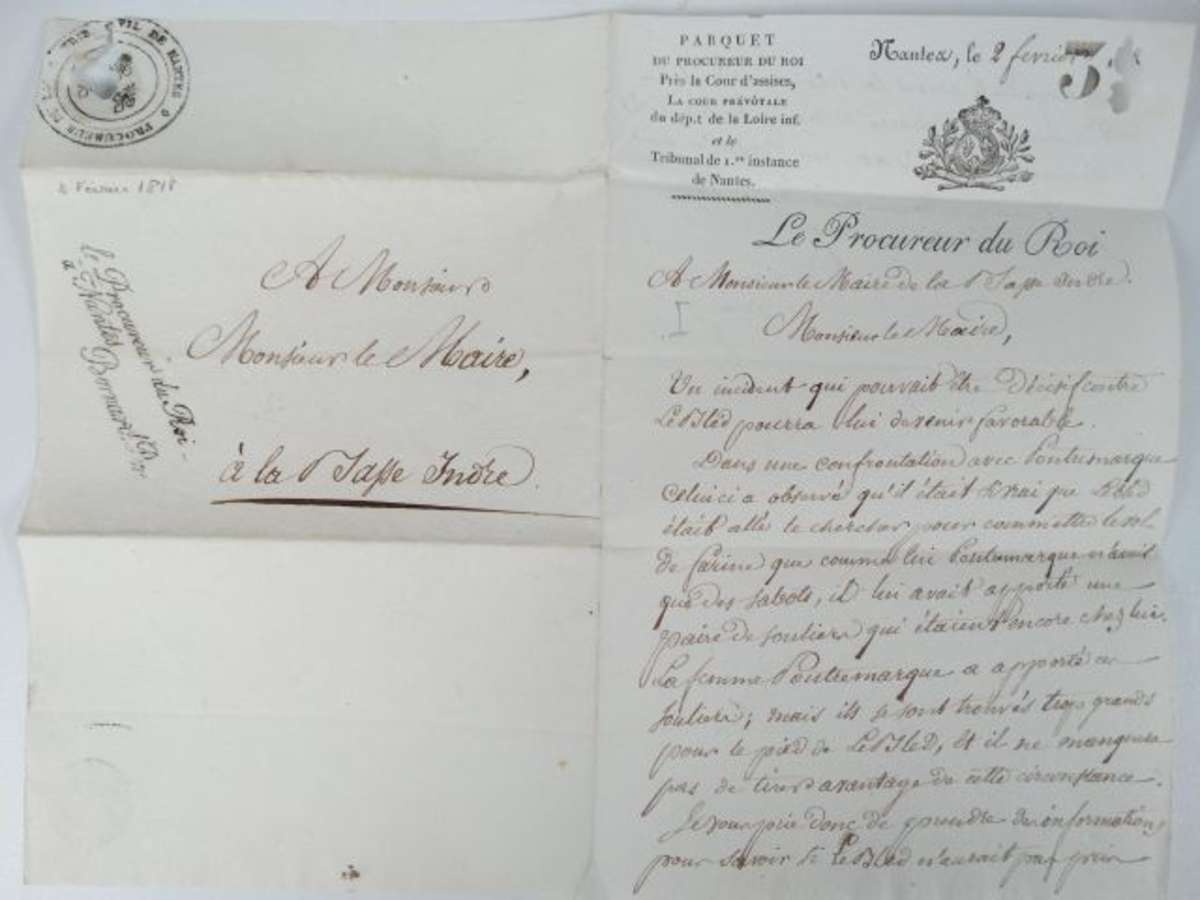 PROCUREUR DU
CIVIL DE NANTES
2 Février 1818
le Procureur du Roi
à Nantes
A Monsieur
Monsieur le Maire,
à la Basse Indre.
PARQUET
DU PROCUREUR DU ROI
Près la Cour d'assises,
LA COUR PRÉVÔTALE
du dép.t de la Loire inf.
et le
Tribunal de 1.re instance
de Nantes.
Nantes, le 2 février
Le Procureur du Roi
A Monsieur le Maire de la Basse Indre.
Monsieur le Maire,
Un incident qui pouvait être décisif contre
Le Bled pourra lui devenir favorable.
Dans une confrontation avec Pontumarque
Celui ci a observé qu'il était si vrai que Le Bled
était allé le chercher pour commettre le vol
de farine que comme lui Pontumarque n'avait
que des sabots, il lui avait apporté une
paire de souliers qui étaient encore chez lui.
La femme Pontumarque a apporté ces
souliers; mais ils se sont trouvés trop grands
pour le pied de Le Bled, et il ne manquera
pas de tirer avantage de cette circonstance.
Je vous prie donc de prendre des informations
pour savoir si Le Bled n'aurait pas pris